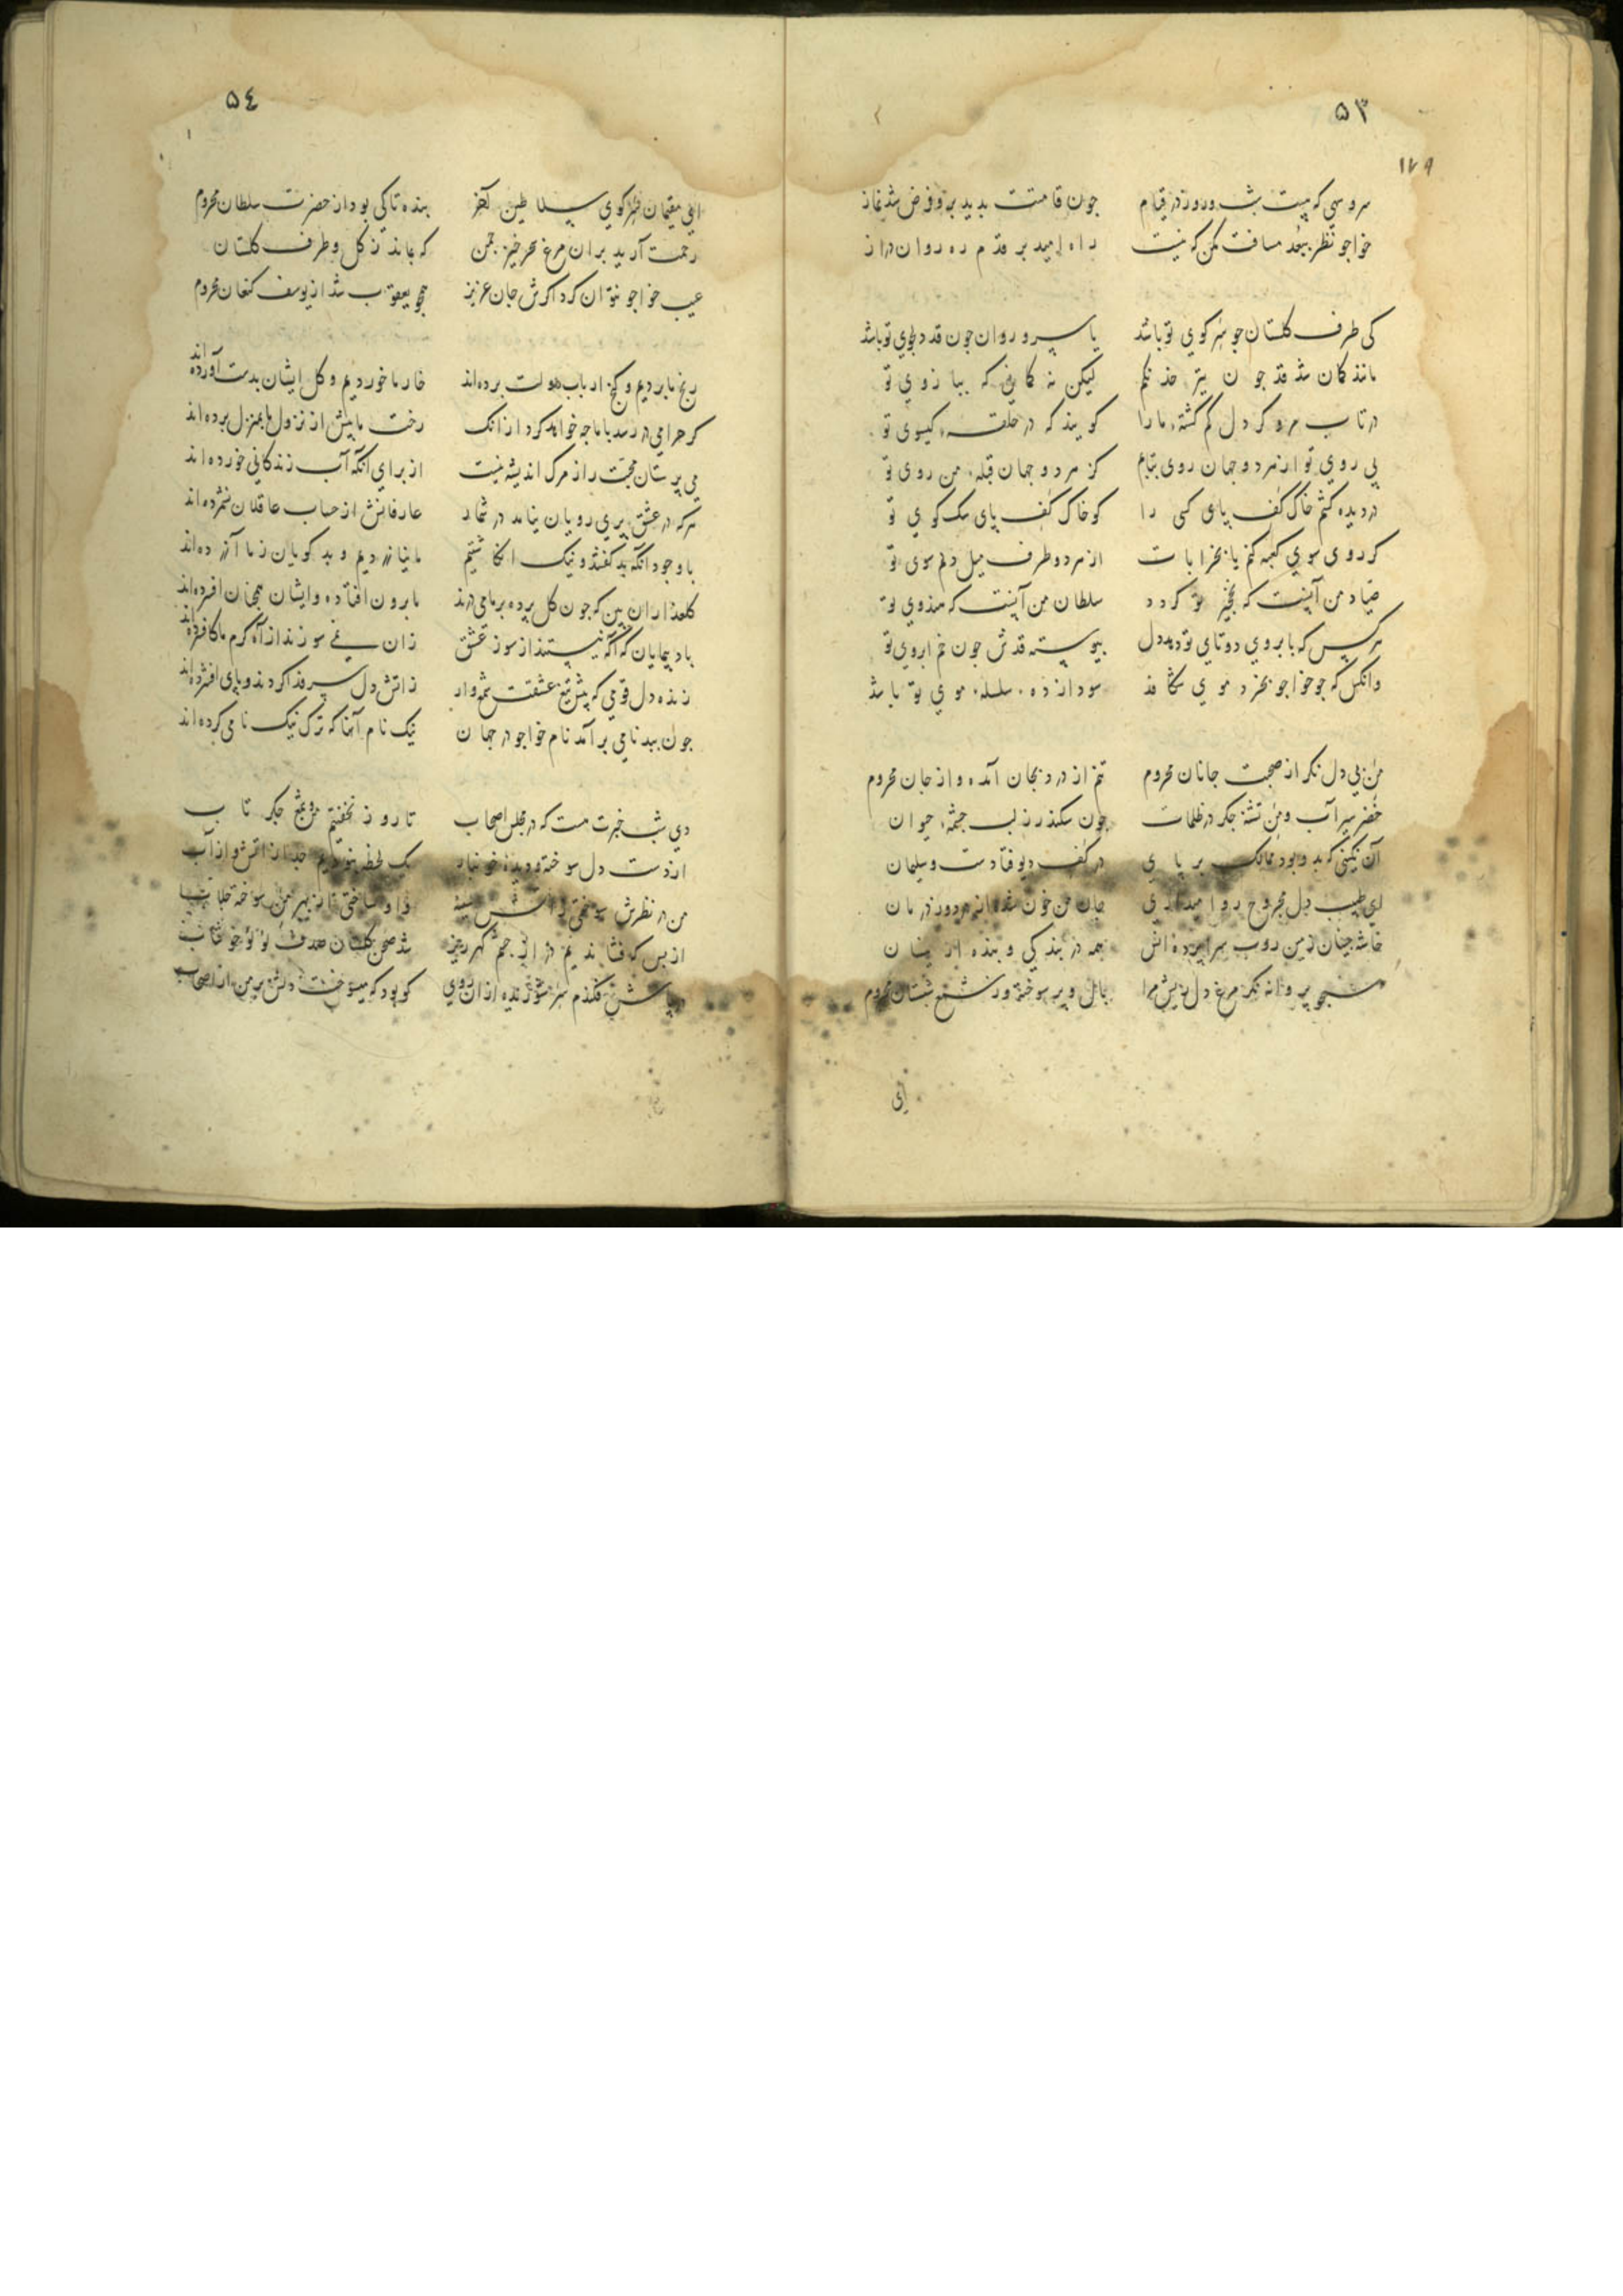 ۵۳
۱۷۹
سرو سهی که هست شب و روز در قیام جون قامتت بدید برو فرض شد نماز
خواجو نظر ببعد مسافت مکن که نیست راه امید بر قدم ره روان دراز
کی طرف کلستان جو سر کوی تو باشد یا سرو روان جون قد دلجوی تو باشد
مانند کمان شد قد جون تیر خدنکم لیکن نه کمانی که ببازوی تو
در تاب مرو کر دل کم کشته ما را کویند که در حلقه کیسوی تو
بی روی تو از هر دو جهان روی بتابم کز هر دو جهان قبله من روی تو
در دیده کشم خاک کف پای کسی را کو خاک کف پای سک کوی تو
کر روی سوی کعبه کنم یا بخرابات از هر دو طرف میل دلم سوی تو
صیاد من آنست که نخجیر تو کردد سلطان من آنست که هندوی تو
هر کس که بابروی دوتای تو دهد دل بیوسته قدش جون خم ابروی تو
وانکس که جو خواجو بخرد موی شکافد سودا زده سلسله موی تو باشد
من بی دل نکر از صحبت جانان محروم تنم از درد بجان آمده و از جان محروم
خضر سیراب و من تشنه جکر در ظلمات جون سکندر ز لب جشمه حیوان
آن نکینی که بدو بود ممالک بر پای در کف دیو فتادست و سلیمان
ای طبیب دل مجروح روا میداری جان من خون شده از درد و ز درمان
خاشه جینان زمین روب سرابرده انس همه در بندکی و بنده ازینسان
همجو پروانه نکر مرغ دل ریش مرا بال و پر سوخته وز شمع شبستان محروم
ای
۵٤
ای مقیمان سر کوی سلاطین آخر بنده تا کی بود از حضرت سلطان محروم
رحمت آرید بران مرغ سحرخیز جمن که بماند ز کل و طرف کلستان
عیب خواجو نتوان کرد اکرش جان عزیز همجو یعقوب شد از یوسف کنعان محروم
رنج ما بردیم و کنج ارباب دولت برده‌اند خار ما خوردیم و کل ایشان بدست آورده‌اند
کر حرامی در رسد با ما جه خواهد کرد از انک رخت ما پیش از نزول ما بمنزل برده‌اند
می پرستان محبت را ز مرک اندیشه نیست از برای انکه آب زندکانی خورده‌اند
هر که در عشق پری رویان نیامد در شمار عارفانش از حساب عاقلان نشمرده‌اند
با وجود انکه بد کفتند و نیک انکاشتیم ما نیازردیم و بد کویان ز ما آزرده‌اند
کلعذاران بین که جون کل پرده بر ما می درند ما برون افتاده و ایشان همجنان
باد پیمایان که آکه نیستند از سوز عشق زان نمی سوزند از آه کرم ما کافسرده‌اند
زنده دل قومی که پیش تیغ عشقت شمع وار ز اتش دل سر فدا کردند و پای افشرده‌اند
جون ببدنامی برآمد نام خواجو در جهان نیک نام آنها که ترک نیک نامی کرده‌اند
دی شب خبرت هست که در مجلس اصحاب تا روز نخفتیم من و شمع جکر تاب
از دست دل سوخته و دیده خونبار یک لحظه نبودیم جدا ز اتش و از آب
من در نظرش سوختمی ز اتش سینه و او ساختی از بهر من سوخته جلاب
از بس که فشاندیم در از جشم کهرریز شد صحن کلستان صدف لولوی خوشاب
در پاش فکندم سر شوریده از ان روی کو بود که میسوخت دلش بر من از اصحاب